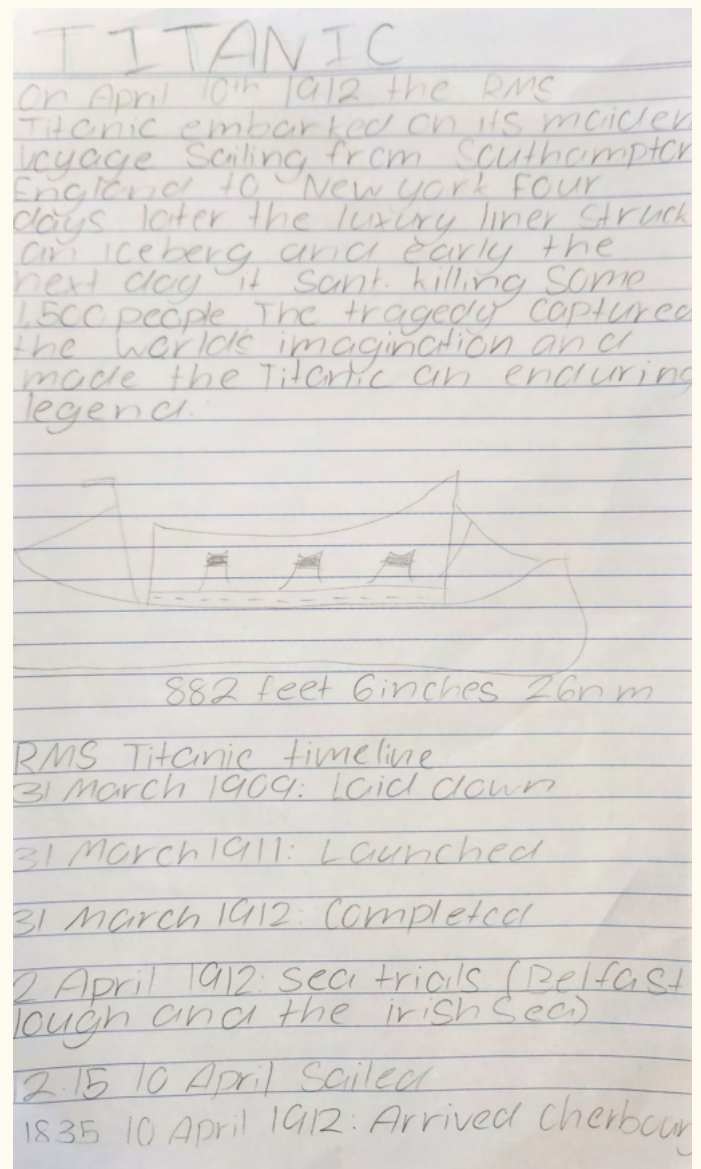 TITANIC
On April 10th 1912 the RMS
Titanic embarked on its maiden
voyage Sailing from Southampton
England to New york Four
days later the luxury liner struck
an iceberg and early the
next day it sank. killing some
1,500 people The tragedy captured
the worlds imagination and
made the Titanic an enduring
legend.
882 feet 6inches 26n m
RMS Titanic timeline
31 March 1909: Laid down
31 March 1911: Launched
31 March 1912: Completed
2 April 1912: sea trials (Belfast
lough and the irish Sea)
12.15 10 April Sailed
1835 10 April 1912: Arrived Cherbour